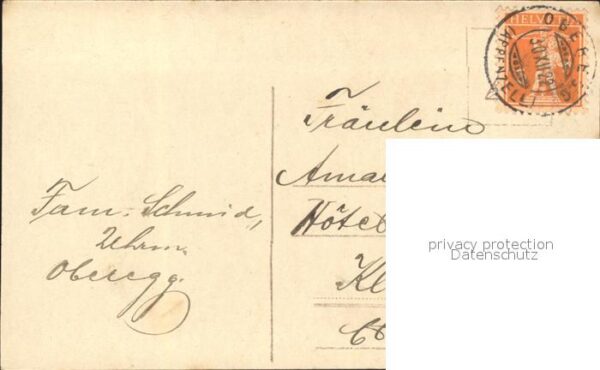 HELVETIA
OBEREGG
(APPENZELL)
Fräulein
Hôtel
Fam. Schmid,
Uhrm.
Oberegg.
privacy protection
Datenschutz